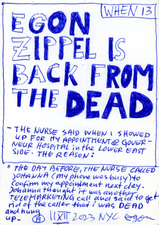 WHEN 13
EGON
ZIPPEL IS
BACK FROM
THE DEAD
- THE NURSE SAID WHEN I SHOWED
UP FOR MY APPOINTMENT @ GOUVER-
NEUR HOSPITAL IN THE LOWER EAST
SIDE - THE REASON:
THE DAY BEFORE, THE NURSE CALLED
JOHANNA (MY PHONE WAS BUSY) to
confirm my appointment next day.
Johanna thought it was another
TELEMARKETING call and said to get
rid of the caller that i was DEAD
and hung
up -
11 XII 2023 NYC egon